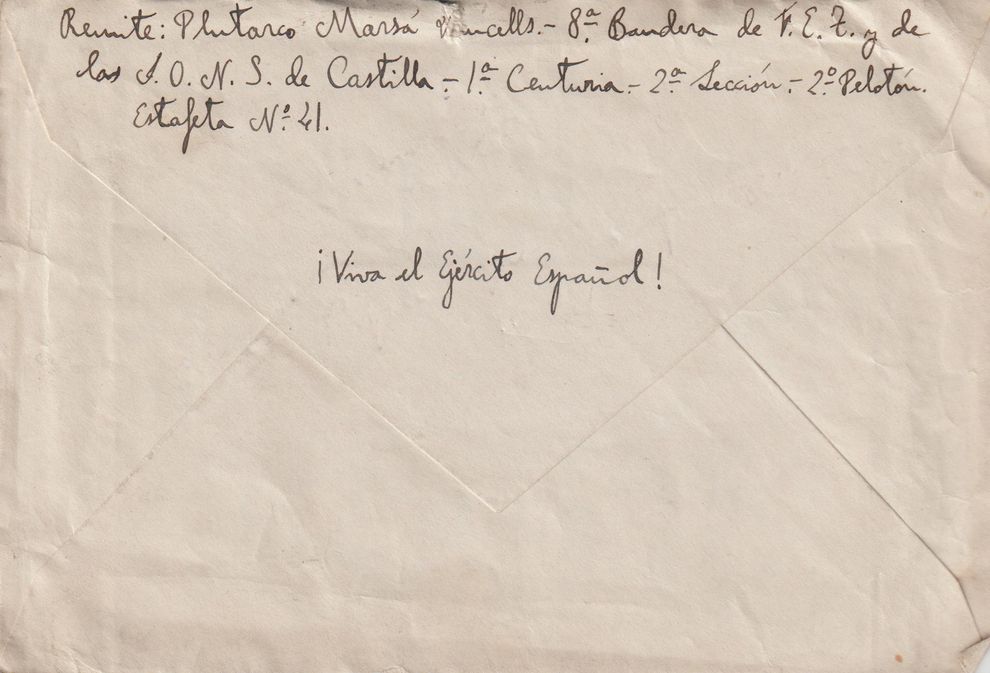 Remite: Plutarco Marsá Vancells.- 8ª Bandera de F. E. T. y de
las J. O. N. S. de Castilla.- 1ª Centuria.- 2ª Sección.- 2º Pelotón.
Estafeta Nº 41.
¡Viva el Ejército Español!